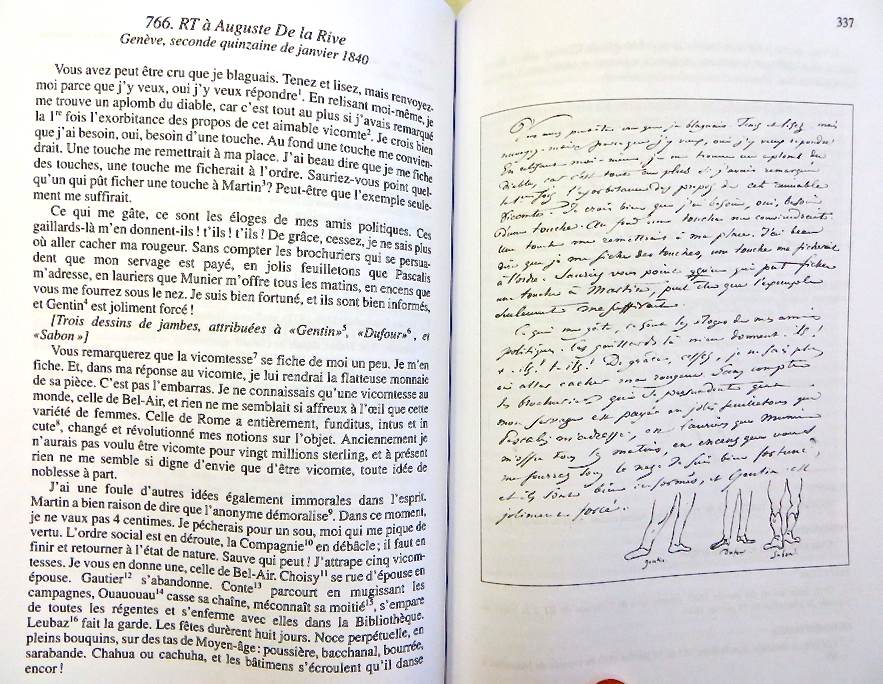 766. RT à Auguste De la Rive
Genève, seconde quinzaine de janvier 1840
Vous avez peut être cru que je blaguais. Tenez et lisez, mais renvoyez-
moi parce que j'y veux, oui j'y veux répondre¹. En relisant moi-même, je
me trouve un aplomb du diable, car c'est tout au plus si j'avais remarqué
la 1re fois l'exorbitance des propos de cet aimable vicomte². Je crois bien
que j'ai besoin, oui, besoin d'une touche. Au fond une touche me convien-
drait. Une touche me remettrait à ma place. J'ai beau dire que je me fiche
des touches, une touche me ficherait à l'ordre. Sauriez-vous point quel-
qu'un qui pût ficher une touche à Martin³? Peut-être que l'exemple seule-
ment me suffirait.
Ce qui me gâte, ce sont les éloges de mes amis politiques. Ces
gaillards-là m'en donnent-ils ! t'ils ! t'ils ! De grâce, cessez, je ne sais plus
où aller cacher ma rougeur. Sans compter les brochuriers qui se persua-
dent que mon servage est payé, en jolis feuilletons que Pascalis
m'adresse, en lauriers que Munier m'offre tous les matins, en encens que
vous me fourrez sous le nez. Je suis bien fortuné, et ils sont bien informés,
et Gentin⁴ est joliment forcé !
[Trois dessins de jambes, attribuées à «Gentin»⁵, «Dufour»⁶, et
«Sabon»]
Vous remarquerez que la vicomtesse⁷ se fiche de moi un peu. Je m'en
fiche. Et, dans ma réponse au vicomte, je lui rendrai la flatteuse monnaie
de sa pièce. C'est pas l'embarras. Je ne connaissais qu'une vicomtesse au
monde, celle de Bel-Air, et rien ne me semblait si affreux à l'œil que cette
variété de femmes. Celle de Rome a entièrement, funditus, intus et in
cute⁸, changé et révolutionné mes notions sur l'objet. Anciennement je
n'aurais pas voulu être vicomte pour vingt millions sterling, et à présent
rien ne me semble si digne d'envie que d'être vicomte, toute idée de
noblesse à part.
J'ai une foule d'autres idées également immorales dans l'esprit.
Martin a bien raison de dire que l'anonyme démoralise⁹. Dans ce moment,
je ne vaux pas 4 centimes. Je pécherais pour un sou, moi qui me pique de
vertu. L'ordre social est en déroute, la Compagnie¹⁰ en débâcle; il faut en
finir et retourner à l'état de nature. Sauve qui peut ! J'attrape cinq vicom-
tesses. Je vous en donne une, celle de Bel-Air. Choisy¹¹ se rue d'épouse en
épouse. Gautier¹² s'abandonne. Conte¹³ parcourt en mugissant les
campagnes, Ouauouau¹⁴ casse sa chaîne, méconnaît sa moitié¹⁵, s'empare
de toutes les régentes et s'enferme avec elles dans la Bibliothèque.
Leubaz¹⁶ fait la garde. Les fêtes durèrent huit jours. Noce perpétuelle, en
pleins bouquins, sur des tas de Moyen-âge : poussière, bacchanal, bourrée,
sarabande. Chahua ou cachuha, et les bâtimens s'écroulent qu'il danse
encor !
337
Vous avez peut être cru que je blaguais. Tenez et lisez, mais
renvoyez-moi parce que j'y veux, oui j'y veux répondre.
En relisant moi-même, je me trouve un aplomb du
diable, car c'est tout au plus si j'avais remarqué
la 1re fois l'exorbitance des propos de cet aimable
vicomte. Je crois bien que j'ai besoin, oui, besoin
d'une touche. Au fond une touche me conviendrait.
Une touche me remettrait à ma place. J'ai beau
dire que je me fiche des touches, une touche me ficherait
à l'ordre. Sauriez vous point quelqu'un qui pût ficher
une touche à Martin, peut être que l'exemple
seulement me suffirait.
Ce qui me gâte, ce sont les éloges de mes amis
politiques. Ces gaillards là m'en donnent-ils !
t'ils ! t-ils ! De grâce, cessez, je ne sais plus
où aller cacher ma rougeur. Sans compter
les brochuriers qui se persuadent que
mon servage est payé en jolis feuilletons que
Pascalis m'adresse, en lauriers que Munier
m'offre tous les matins, en encens que vous
me fourrez sous le nez. Je suis bien fortuné,
et ils sont bien informés, et Gentin est
joliment forcé !
gentin
Dufour
Sabon